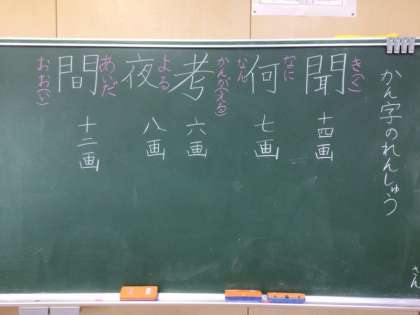 かん字のれんしゅう
さん
き(く)
聞
十四画
なに
何
なん
七画
かんが(える)
考
六画
よる
夜
八画
あいだ
間
十二画